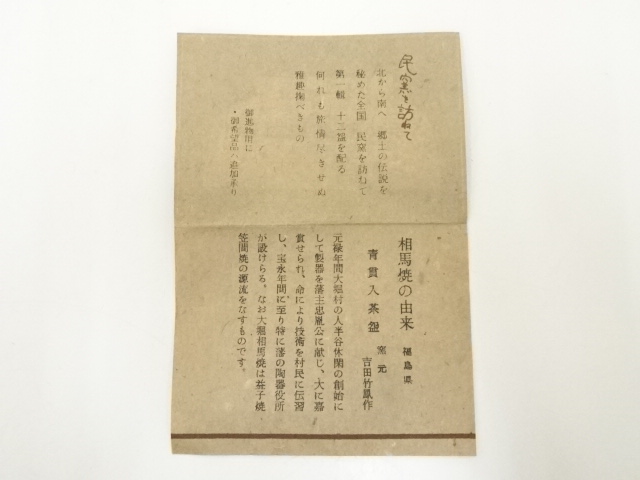 民窯を訪ねて
北から南へ 郷土の伝説を
秘めた全国 民窯を訪ねて
第一輯 十二盌を配る
何れも旅情尽きせぬ
雅趣掬べきもの
御進物用に
・御希望品の追加承り
相馬焼の由来 福島県
青貫入茶盌 窯元 吉田竹鳳作
元禄年間大堀村の人半谷休閑の創始に
して製器を藩主忠胤公に献じ、大に嘉
賞せられ、命により技術を村民に伝習
し、宝永年間に至り特に藩の陶器役所
が設けらる。なお大堀相馬焼は益子焼、
笠間焼の源流をなすものです。